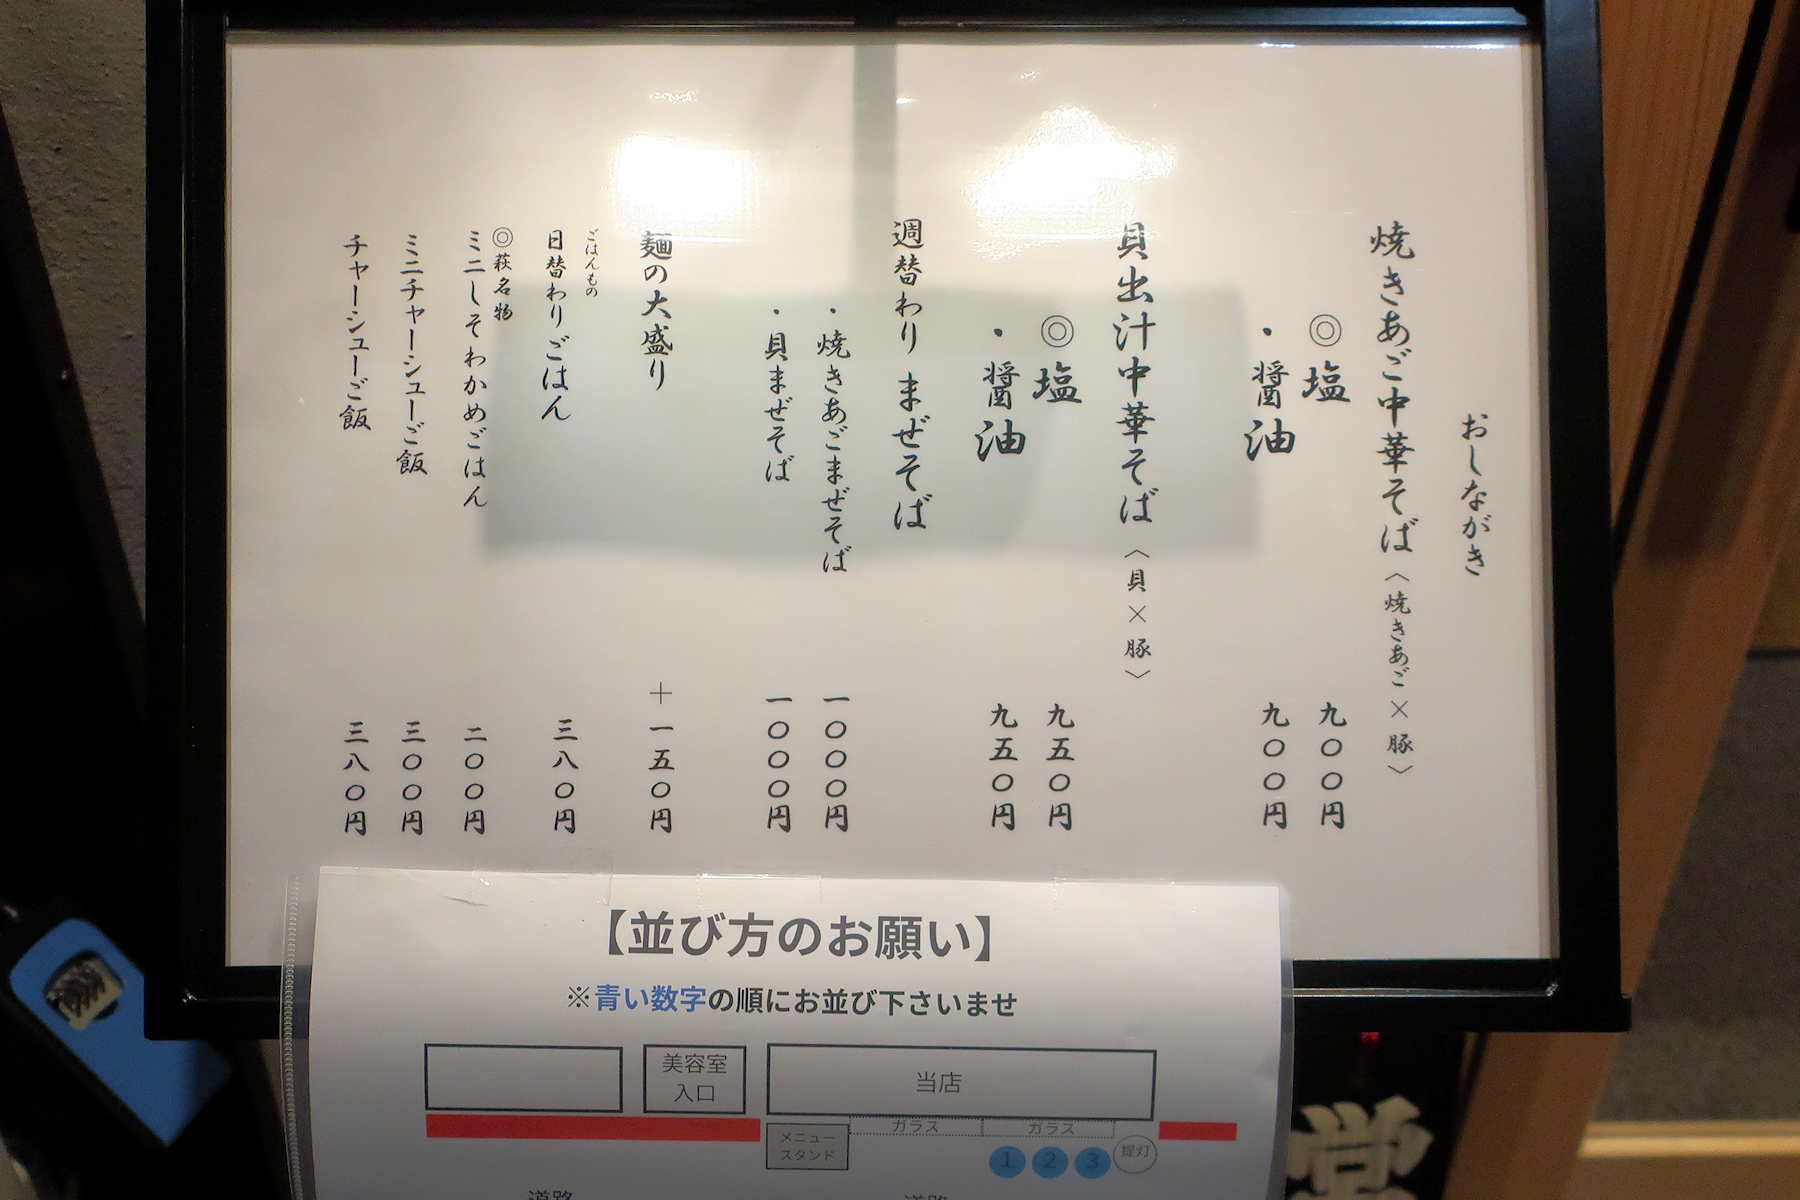 おしながき
焼きあご中華そば〈焼きあご×豚〉
◎塩 九〇〇円
・醤油 九〇〇円
貝出汁中華そば〈貝×豚〉
◎塩 九五〇円
・醤油 九五〇円
週替わり まぜそば
・焼きあごまぜそば 一〇〇〇円
・貝まぜそば 一〇〇〇円
麺の大盛り +一五〇円
ごはんもの
日替わりごはん 三八〇円
◎萩名物
ミニしそわかめごはん 二〇〇円
ミニチャーシューご飯 三〇〇円
チャーシューご飯 三八〇円
【並び方のお願い】
※青い数字の順にお並び下さいませ
美容室
入口
当店
ガラス
ガラス
メニュー
スタンド
1 2 3
提灯
道路
道路